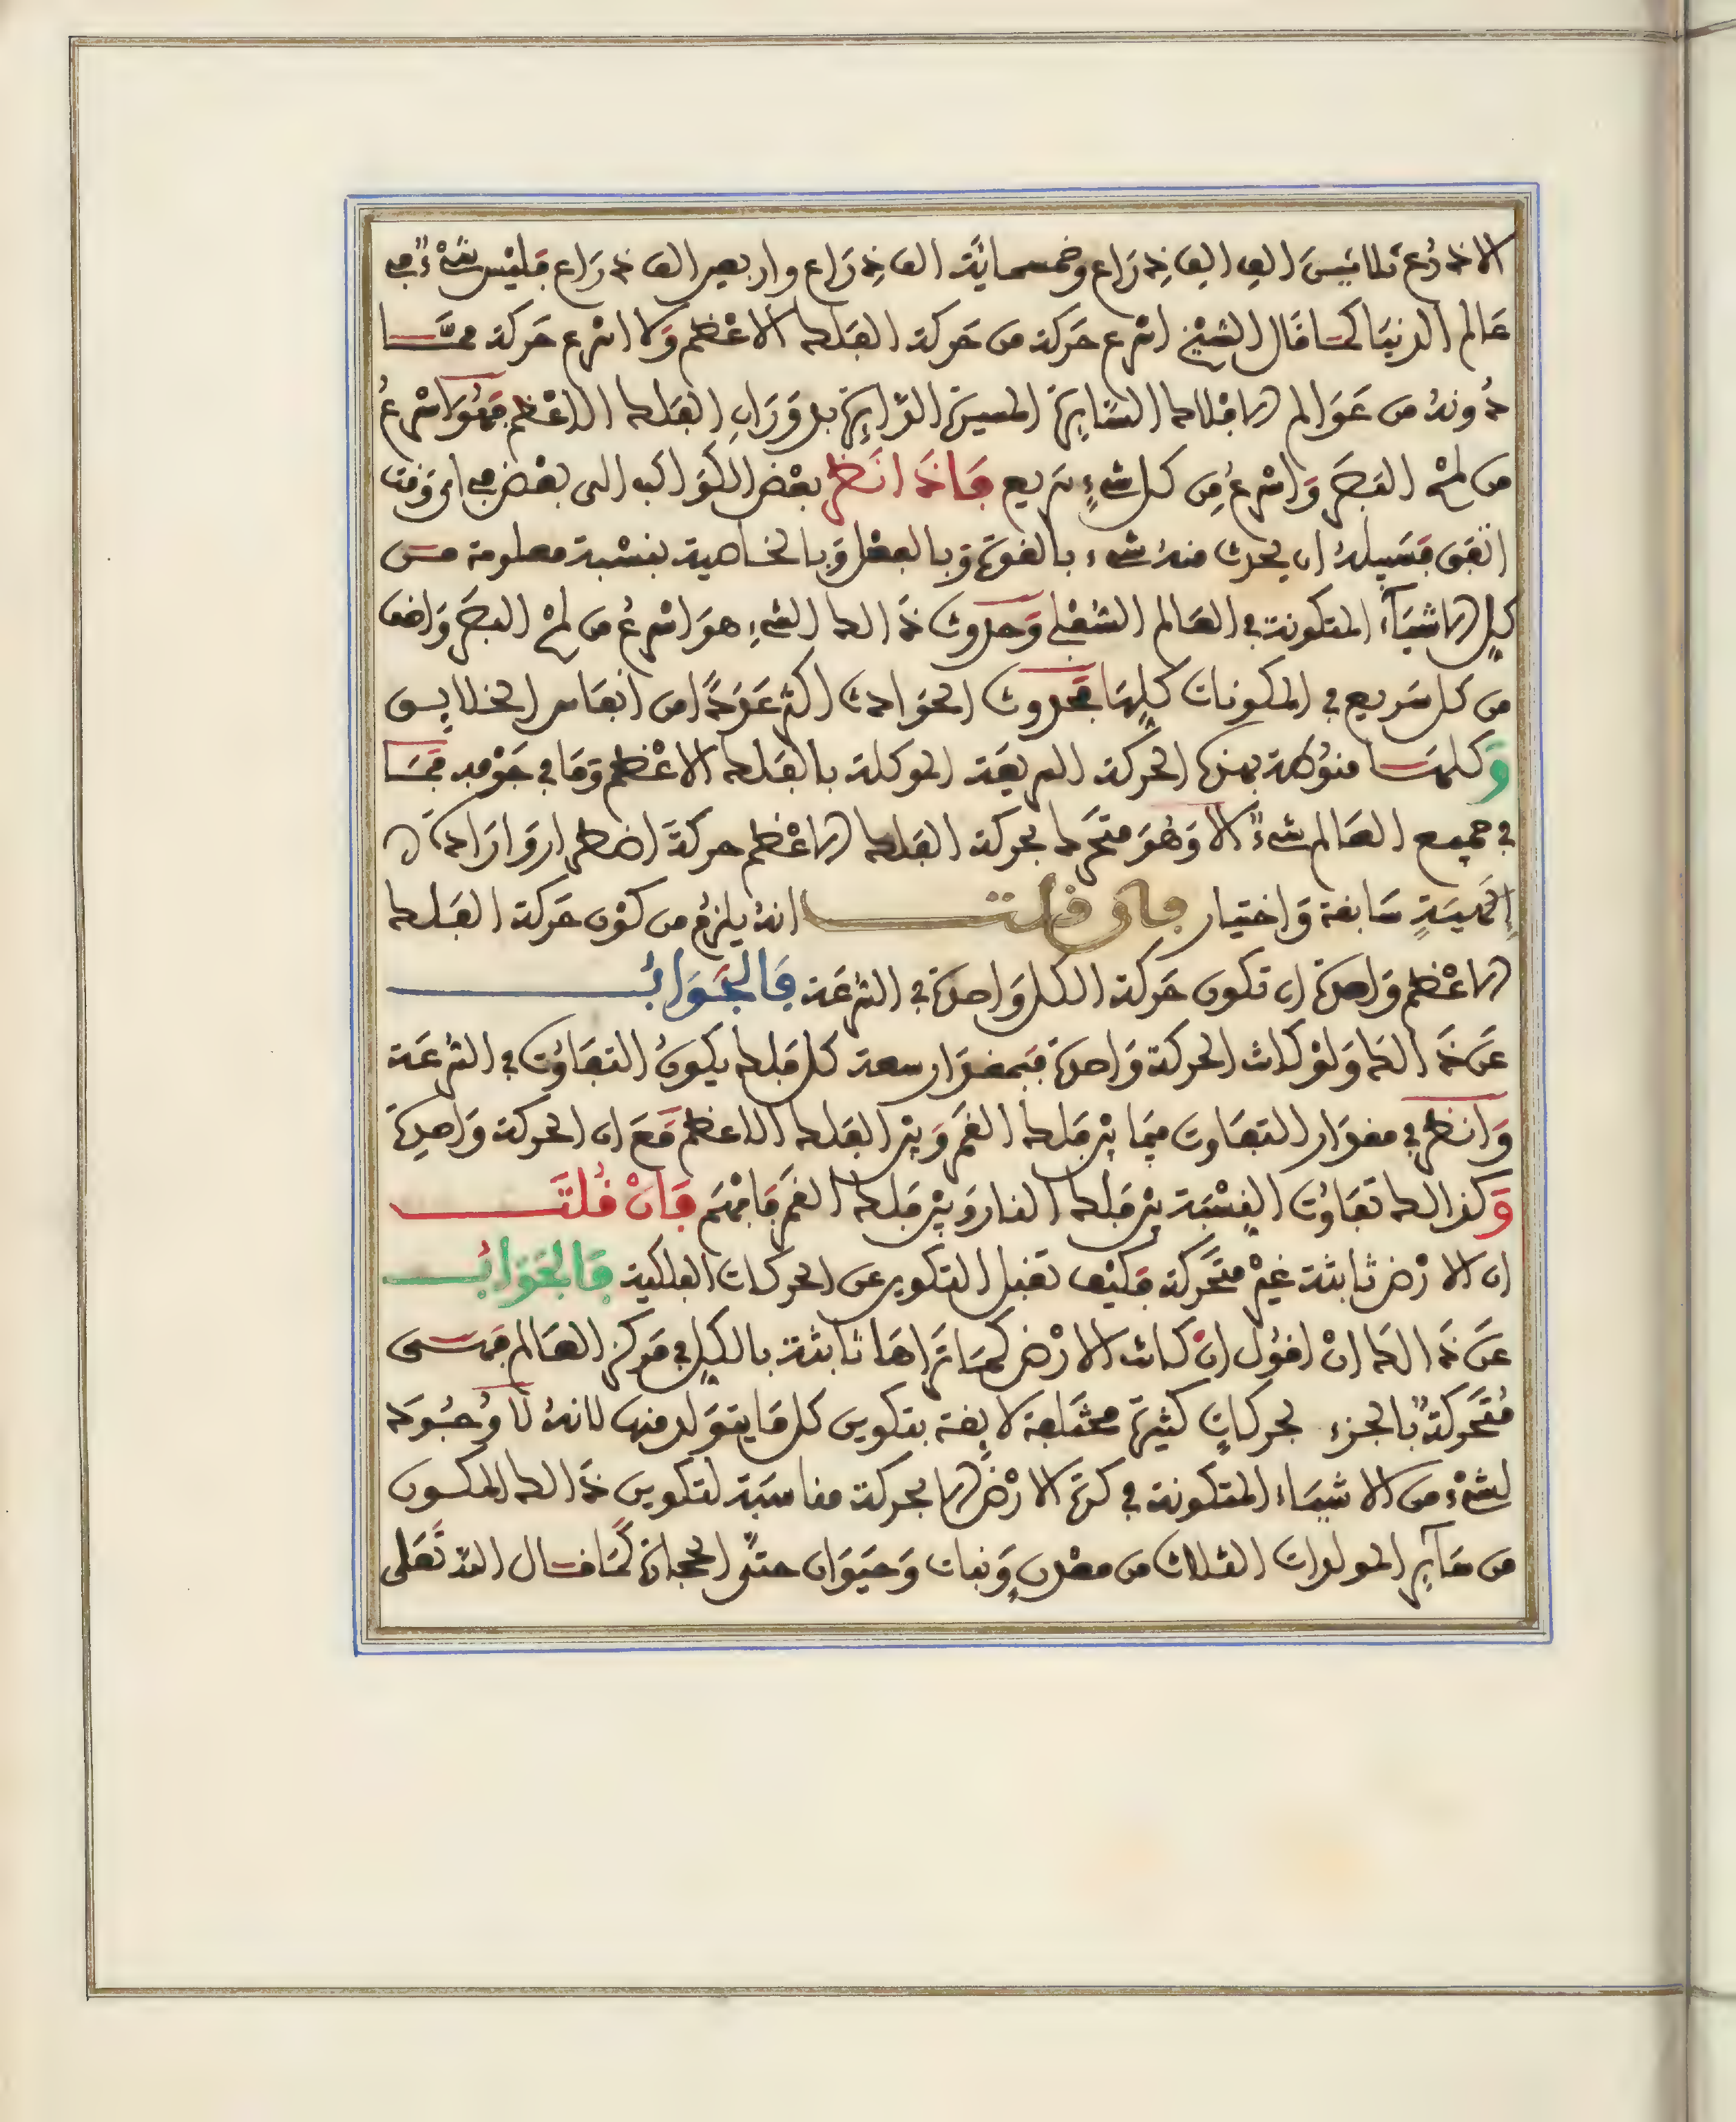 الاذرع ثلاثين الف الف ذراع وخمسمائة الف ذراع واربعين الف ذراع فليس شيء في
عالم الدنيا كما قال الشيخ اسرع حركة من حركة الفلك الاعظم ولا اسرع حركة مما
دونه من عوالم الافلاك السايرة المسيرة الدايرة بدوران الفلك الاعظم فهو اسرع
من لمح البصر واسرع من كل شيء سريع فاذا نظر بعض الكواكب الى بعض في اي وقت
اتفق فسبيله ان يحدث منه شيء بالقوة وبالفعل وبالخاصية بنسبة معلومة من
كل الاشياء المتكونة في العالم السفلي وحدوث ذالك الشيء هو اسرع من لمح البصر واخف
من كل سريع في المكونات كلها فحدوث الحوادث اكثر عددا من انفاس الخلايق
وكلها منوطة بهذه الحركة السريعة الموكلة بالفلك الاعظم وما في جوفه فما
في جميع العالم شيء الا وهو متحرك بحركة الفلك الاعظم حركة اضطرار وارادة
الهية سابقة واختيار فان قلت انه يلزم من كون حركة الفلك
الاعظم واحدة ان تكون حركة الكل واحدة في السرعة فالجواب
عن ذالك ولو كانت الحركة واحدة فبمقدار سعة كل فلك يكون التفاوت في السرعة
وانظر في مقدار التفاوت فيما بين فلك القمر وبين الفلك الاعظم مع ان الحركة واحدة
وكذالك تفاوت النسبة بين فلك النار وبين فلك القمر فافهم فان قلت
ان الارض ثابتة غير متحركة فكيف تقبل التكوين عن الحركات الفلكية فالجواب
عن ذالك ان اقول ان كانت الارض كما تراها ثابتة بالكل في مركز العالم فهي
متحركة بالجزء بحركات كثيرة مختلفة لايقة بتكوين كل ما يتولد منها لانه لا وجود
لشيء من الاشياء المتكونة في كرة الارض الا بحركة مناسبة لتكوين ذالك المكون
من ساير المولدات الثلاث من معدن ونبات وحيوان حتى الحجارة كما قال الله تعلى